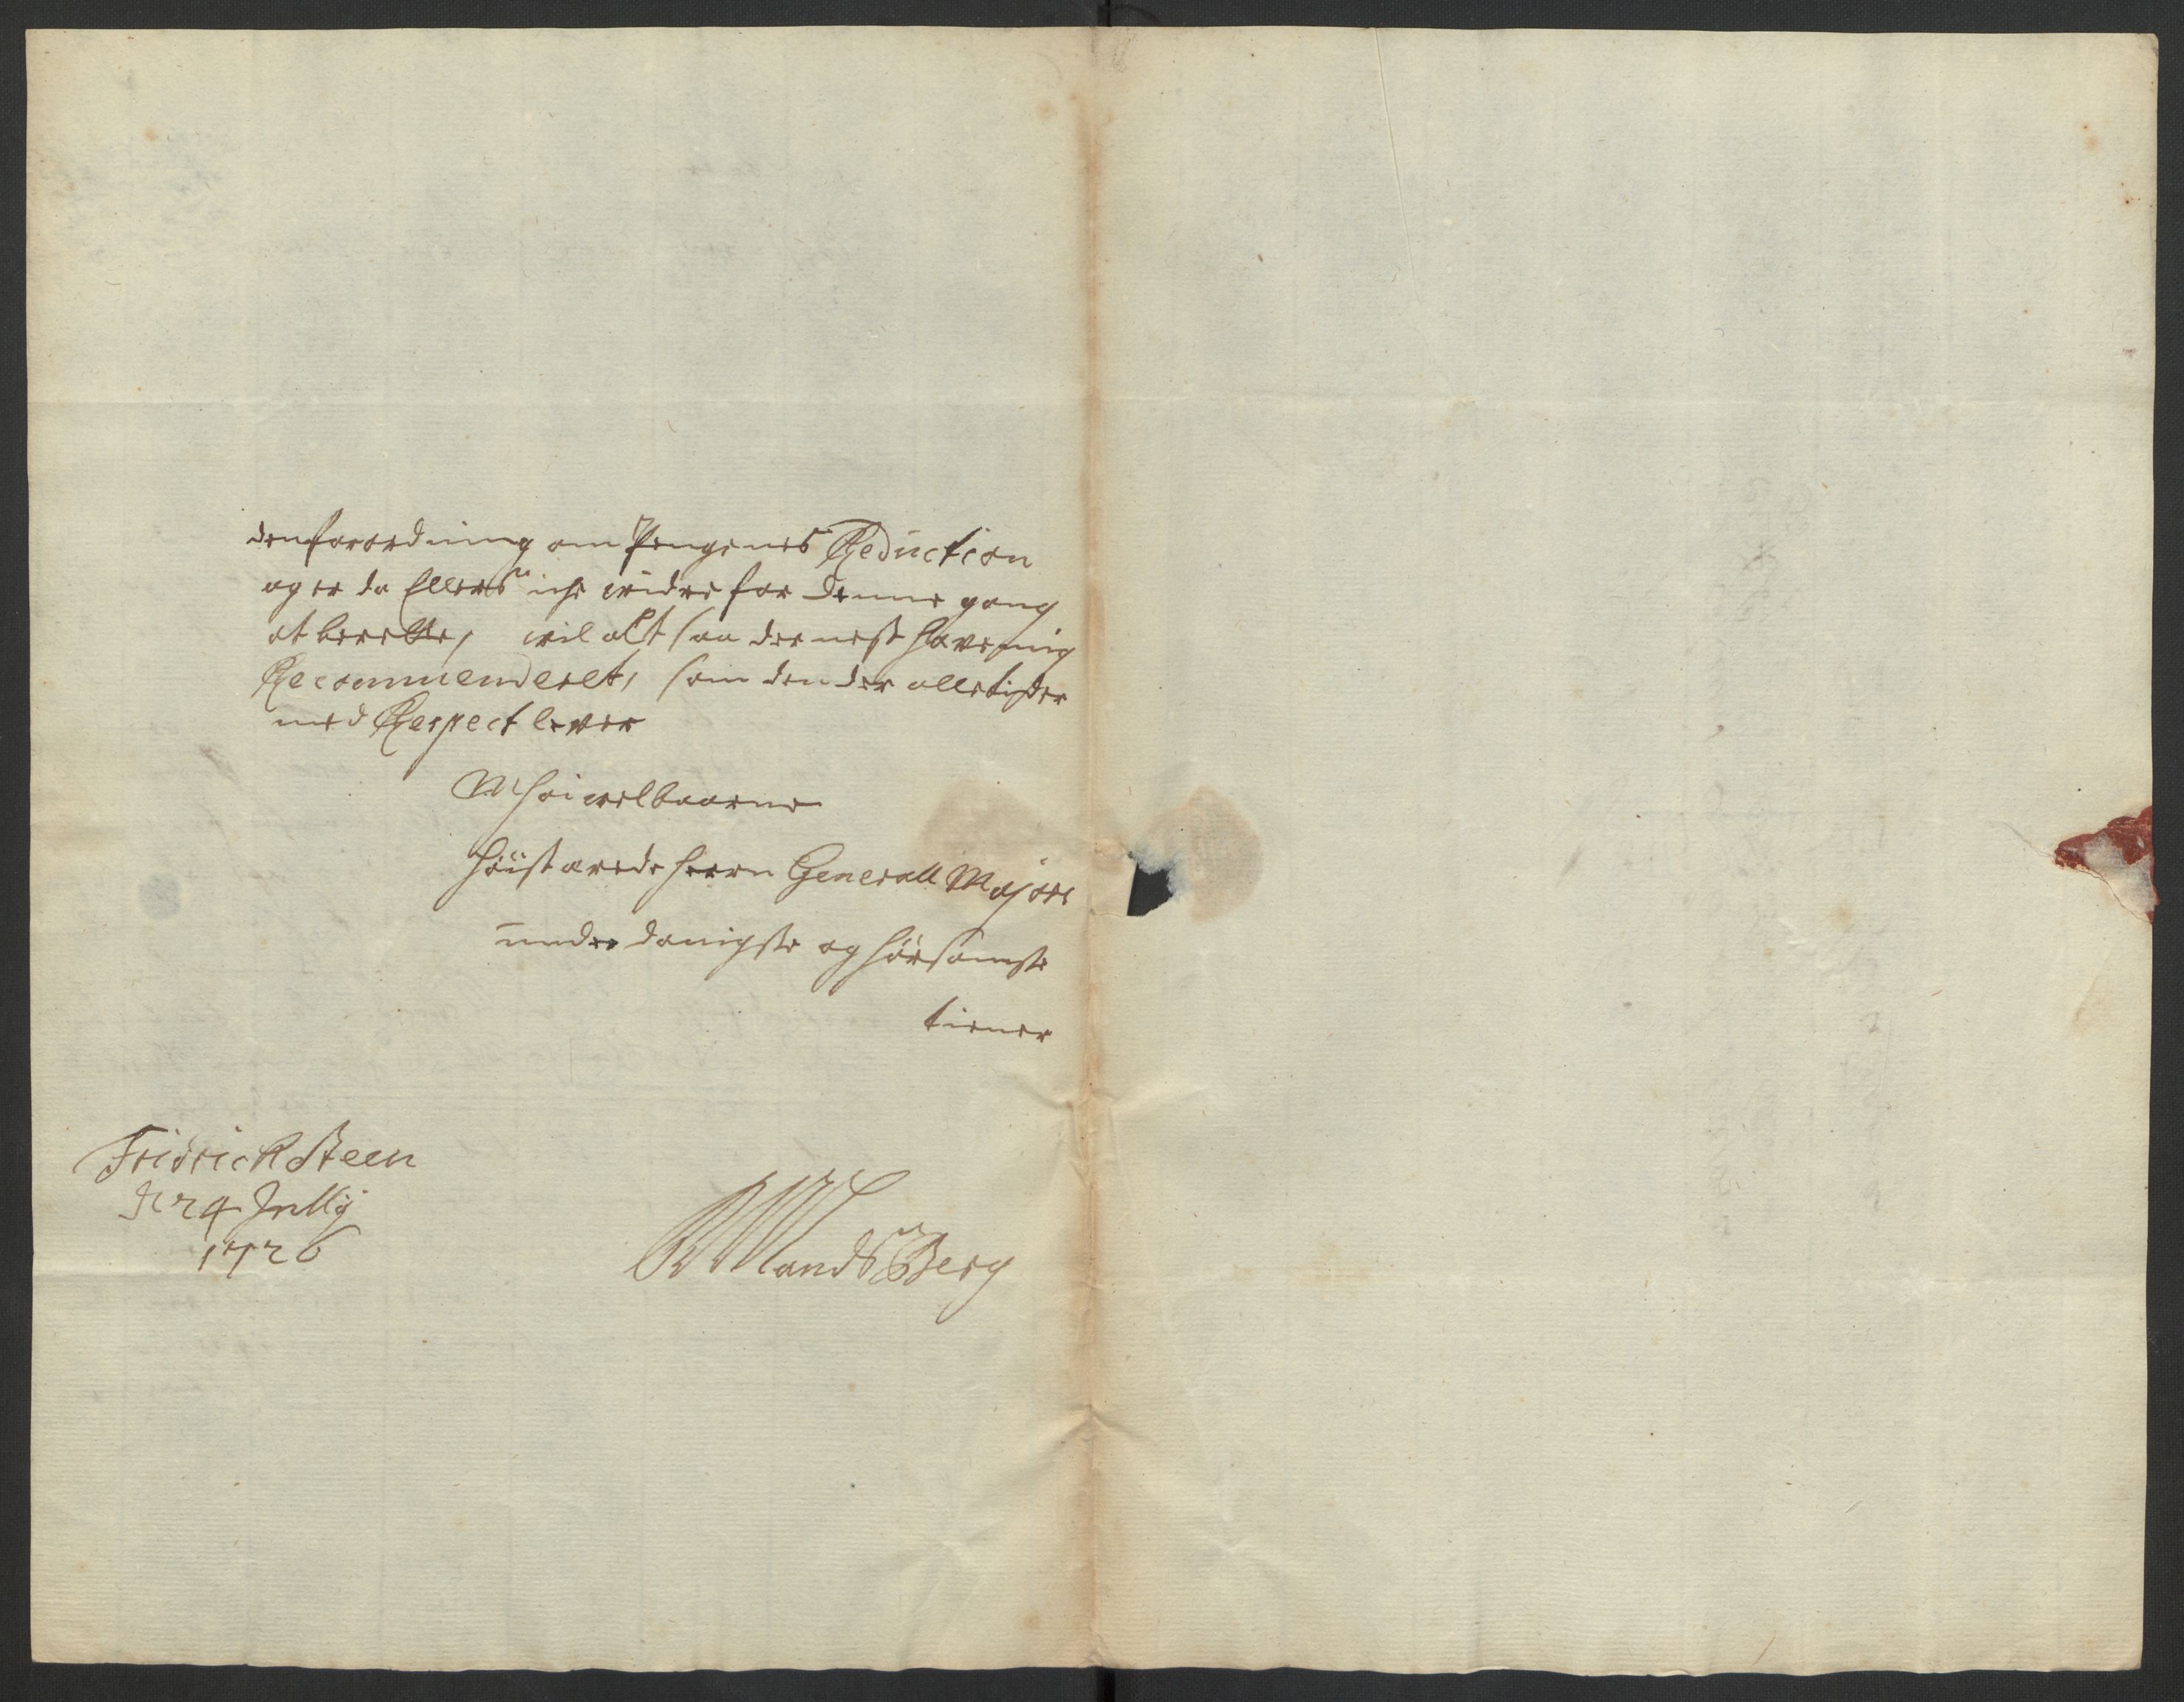 den forordning om Pengenes Reduction
og er da Ellers iche widre for denne gang
at berette, wil alt saa der nest have mig
Recommenderet, som den der alletider
med Respect lever
Høiwelbaarne
Høist ærede Herrn Generall Majors
under danigste og hørsomste
tiener
Fridricksteen
24 Jullij
1726
LandsBerg